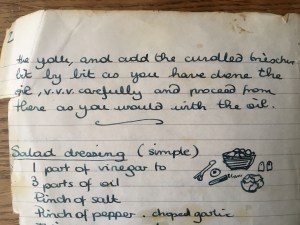 the yolk, and add the curdled mixture
bit by bit as you have done the
oil, v.v.v. carefully and proceed from
there as you would with the oil.
Salad dressing (simple)
1 part of vinegar to
3 parts of oil
Pinch of salt
Pinch of pepper. choped garlic